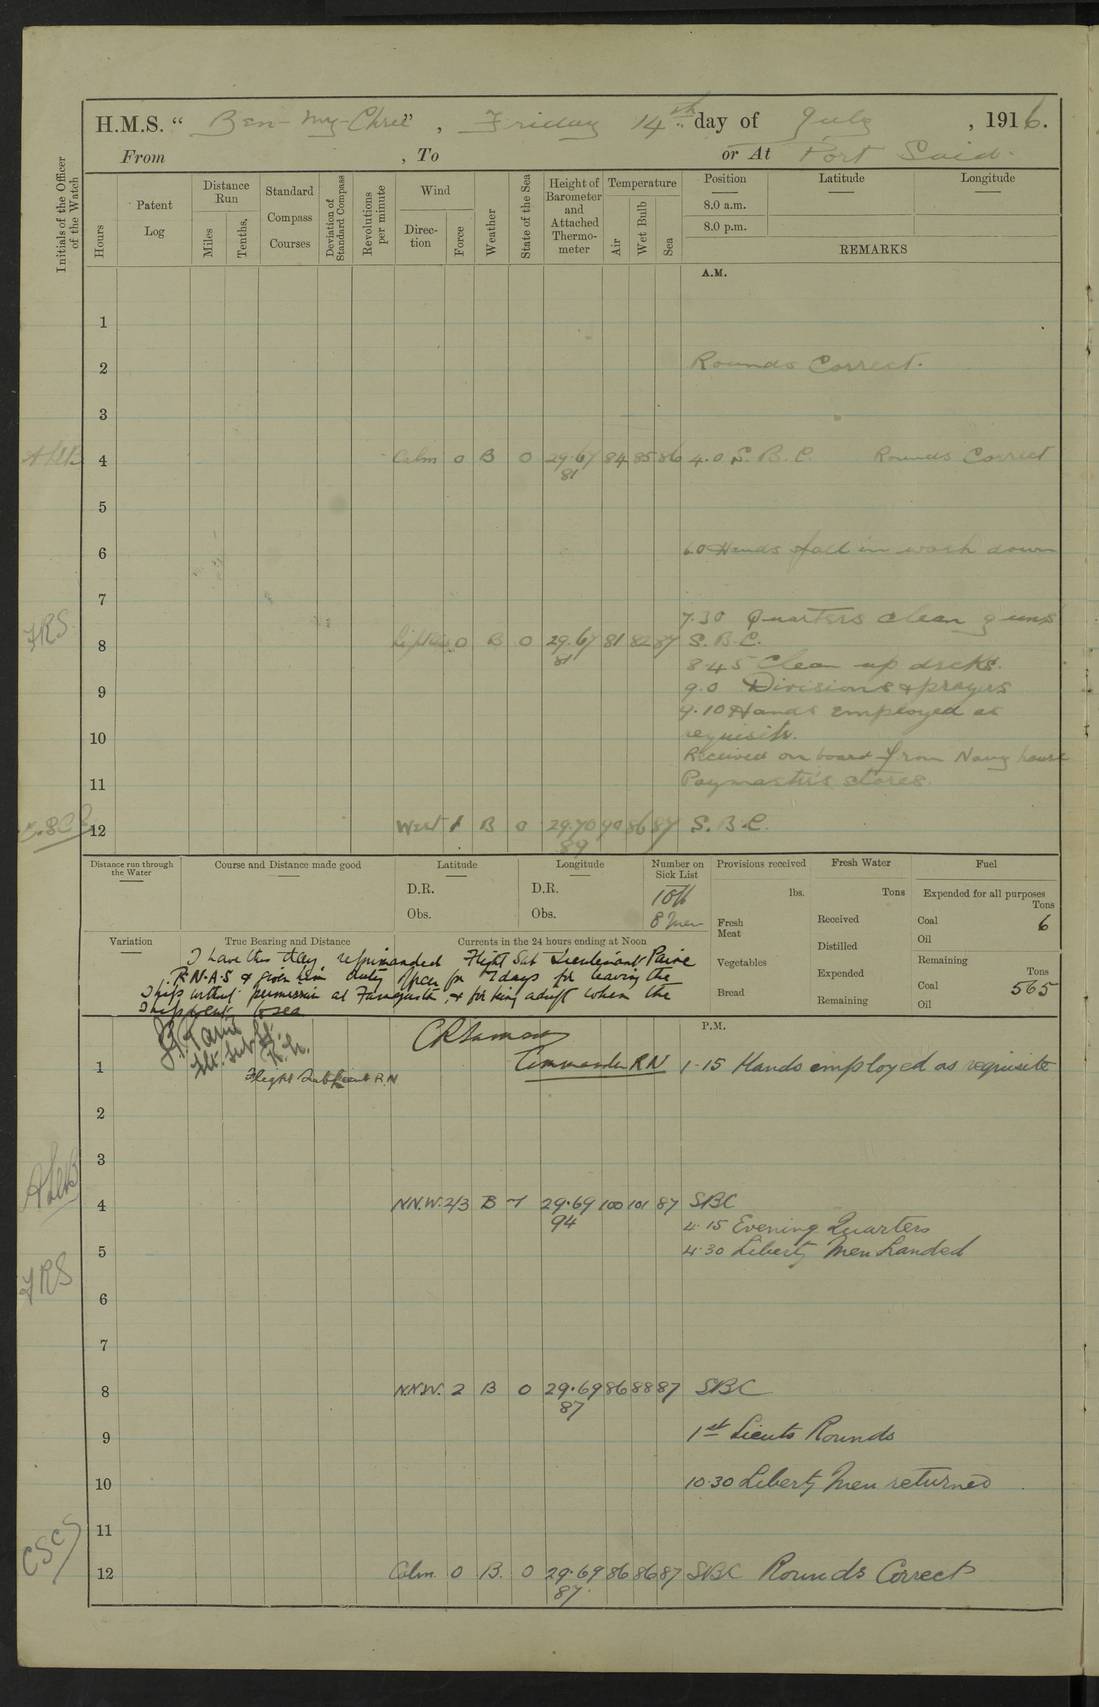 H.M.S. “ Ben-my-Chree ” , Friday 14th day of July , 1916.
From , To or At Port Said.
Initials of the Officer of the Watch
Hours
Patent Log
Distance Run
Miles
Tenths.
Standard Compass Courses
Deviation of Standard Compass
Revolutions per minute
Wind
Direction
Force
Weather
State of the Sea
Height of Barometer and Attached Thermometer
Temperature
Air
Wet Bulb
Sea
Position
8.0 a.m.
8.0 p.m.
Latitude
Longitude
REMARKS
A.M.
1
2 Rounds Correct.
3
4 Calm 0 B 0 29.67 84 85 86 4.0 S.B.C. Rounds Correct
81
5
6 6.0 Hands fall in wash down
7
7.30 Quarters clean guns
FRS
8 0 B 0 29.67 81 82 87 S.B.C.
81
8.45 Clean up decks.
9 9.0 Divisions & prayers
9.10 Hands employed as
10 requisite.
Received on board from Navy house
11 Paymaster's stores.
12 West 1 B 0 29.70 90 86 87 S.B.C.
89
Distance run through the Water
Course and Distance made good
Latitude
D.R.
Obs.
Longitude
D.R.
Obs.
Number on Sick List
1 Off
8 Men
Provisions received
lbs.
Fresh Meat
Vegetables
Bread
Fresh Water
Tons
Received
Distilled
Expended
Remaining
Fuel
Expended for all purposes
Tons
Coal 6
Oil
Remaining
Tons
Coal 565
Oil
Variation
True Bearing and Distance
Currents in the 24 hours ending at Noon
I have this day reprimanded Flight Sub Lieutenant Paine
R.N.A.S & given him duty Officer for 7 days for leaving the
Ship without permission at Famagusta, & for being adrift when the
Ship went to sea
CRSamson
Commander RN
Flight Sub Lieut R.N
P.M.
1 1.15 Hands employed as requisite
2
3
4 N.N.W. 2/3 B 1 29.69 100 101 87 SBC
94
4.15 Evening Quarters
5 4.30 Liberty Men Landed
FRS
6
7
8 N.N.W. 2 B 0 29.69 86 88 87 SBC
87
9 1st Lieuts Rounds
10 10.30 Liberty Men returned
11
12 Calm 0 B. 0 29.69 86 86 87 SBC Rounds Correct
87.
CSCS